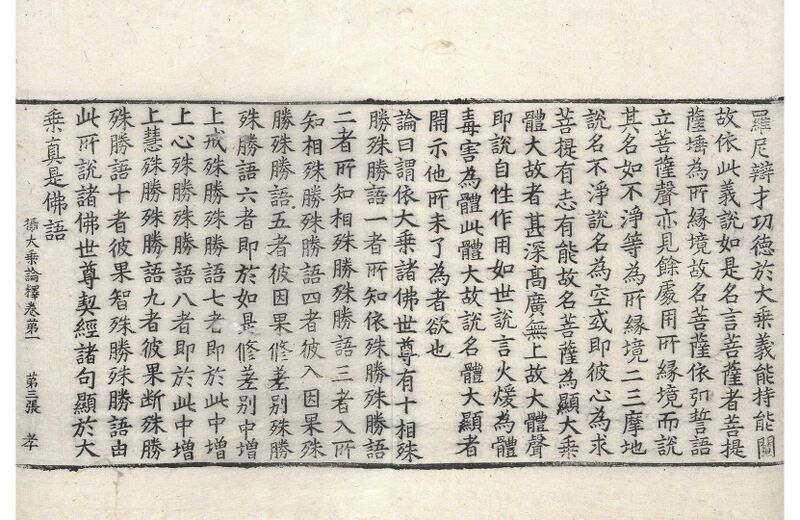 羅尼辯才功徳於大乗義能持能闡
故依此義說如是名言菩薩者菩提
薩埵為所縁境故名菩薩依弘誓語
立菩薩聲亦見餘處用所縁境而說
其名如不淨等為所縁境二三摩地
說名不淨說名為空或即彼心為求
菩提有志有能故名菩薩為顯大乗
體大故者甚深髙廣無上故大體聲
即說自性作用如世說言火煖為體
毒害為體此體大故說名體大顯者
開示他所未了為者欲也
論曰謂依大乗諸佛世尊有十相殊
勝殊勝語一者所知依殊勝殊勝語
二者所知相殊勝殊勝語三者入所
知相殊勝殊勝語四者彼入因果殊
勝殊勝語五者彼因果修差別殊勝
殊勝語六者即於如是修差別中增
上戒殊勝殊勝語七者即於此中增
上心殊勝殊勝語八者即於此中增
上慧殊勝殊勝語九者彼果断殊勝
殊勝語十者彼果智殊勝殊勝語由
此所說諸佛世尊契經諸句顯於大
乗真是佛語
攝大乗論釋卷第一 第三張 孝